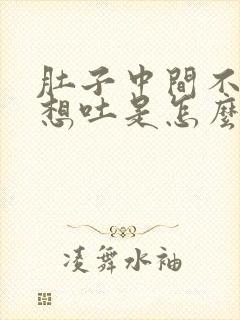 肚子中間不
想吐是怎麼
凌舞水袖